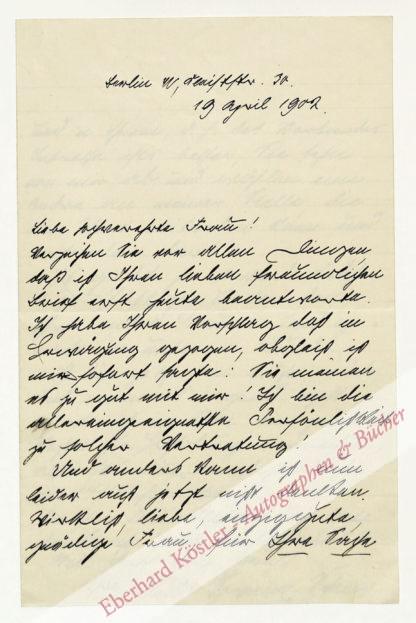 Berlin W, Kleiststr. 30.
19 April 1902.
Liebe hochverehrte Frau!
Verzeihen Sie vor allen Dingen,
daß ich Ihren lieben freundlichen
Brief erst heute beantworte.
Ich habe Ihren Vorschlag doch in
Erwägung gezogen, obgleich ich
mir sofort sagte: Sie meinen
es zu gut mit mir! Ich bin die
allerungeeignetste Persönlichkeit
zu solcher Vertretung!
Und anders kann ich nun
leider auch jetzt nicht denken.
Wirklich, liebe, gute,
gnädige Frau, für Ihre Sache
Eberhard Köstler Autographen & Bücher